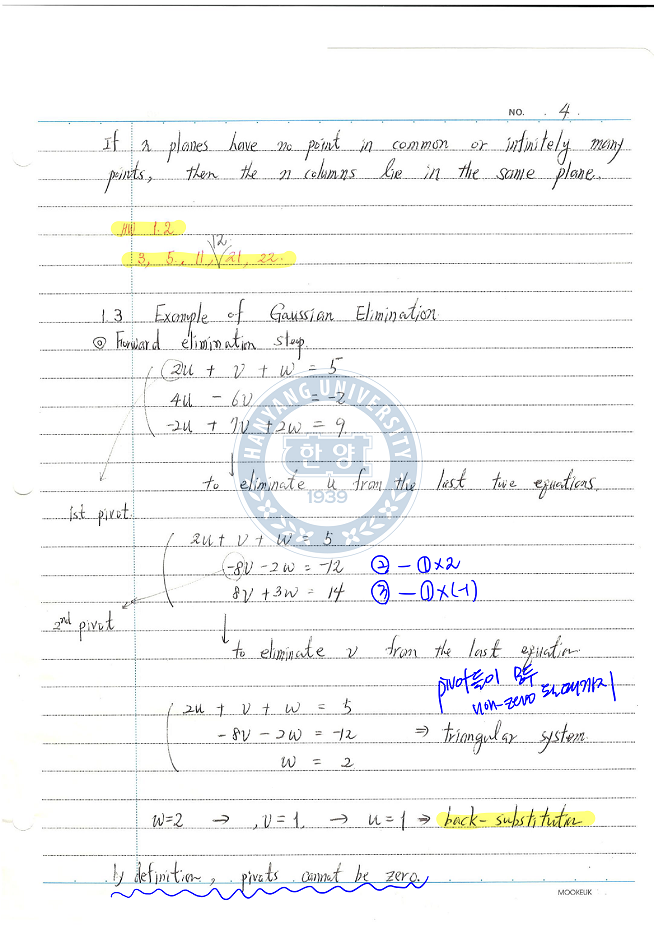 NO. 4.
If n planes have no point in common or infinitely many
points, then the n columns lie in the same plane.
HW 1.2
12
3, 5, 11, 21, 22.
1.3 Example of Gaussian Elimination
◎ Forward elimination step.
2u + v + w = 5
4u - 6v = -2
-2u + 7v + 2w = 9
HANYANG UNIVERSITY
한양
1939
to eliminate u from the last two equations.
1st pivot.
2u + v + w = 5
-8v - 2w = -12 ② - ① × 2
8v + 3w = 14 ③ - ① × (-1)
2nd pivot
to eliminate v from the last equation
pivot들이 모두
non-zero 될 때까지
2u + v + w = 5
-8v - 2w = -12 ⇒ triangular system.
w = 2
w=2 → , v=1, → u=1 ⇒ back-substitution
by definition, pivots cannot be zero.
MOOKEUK